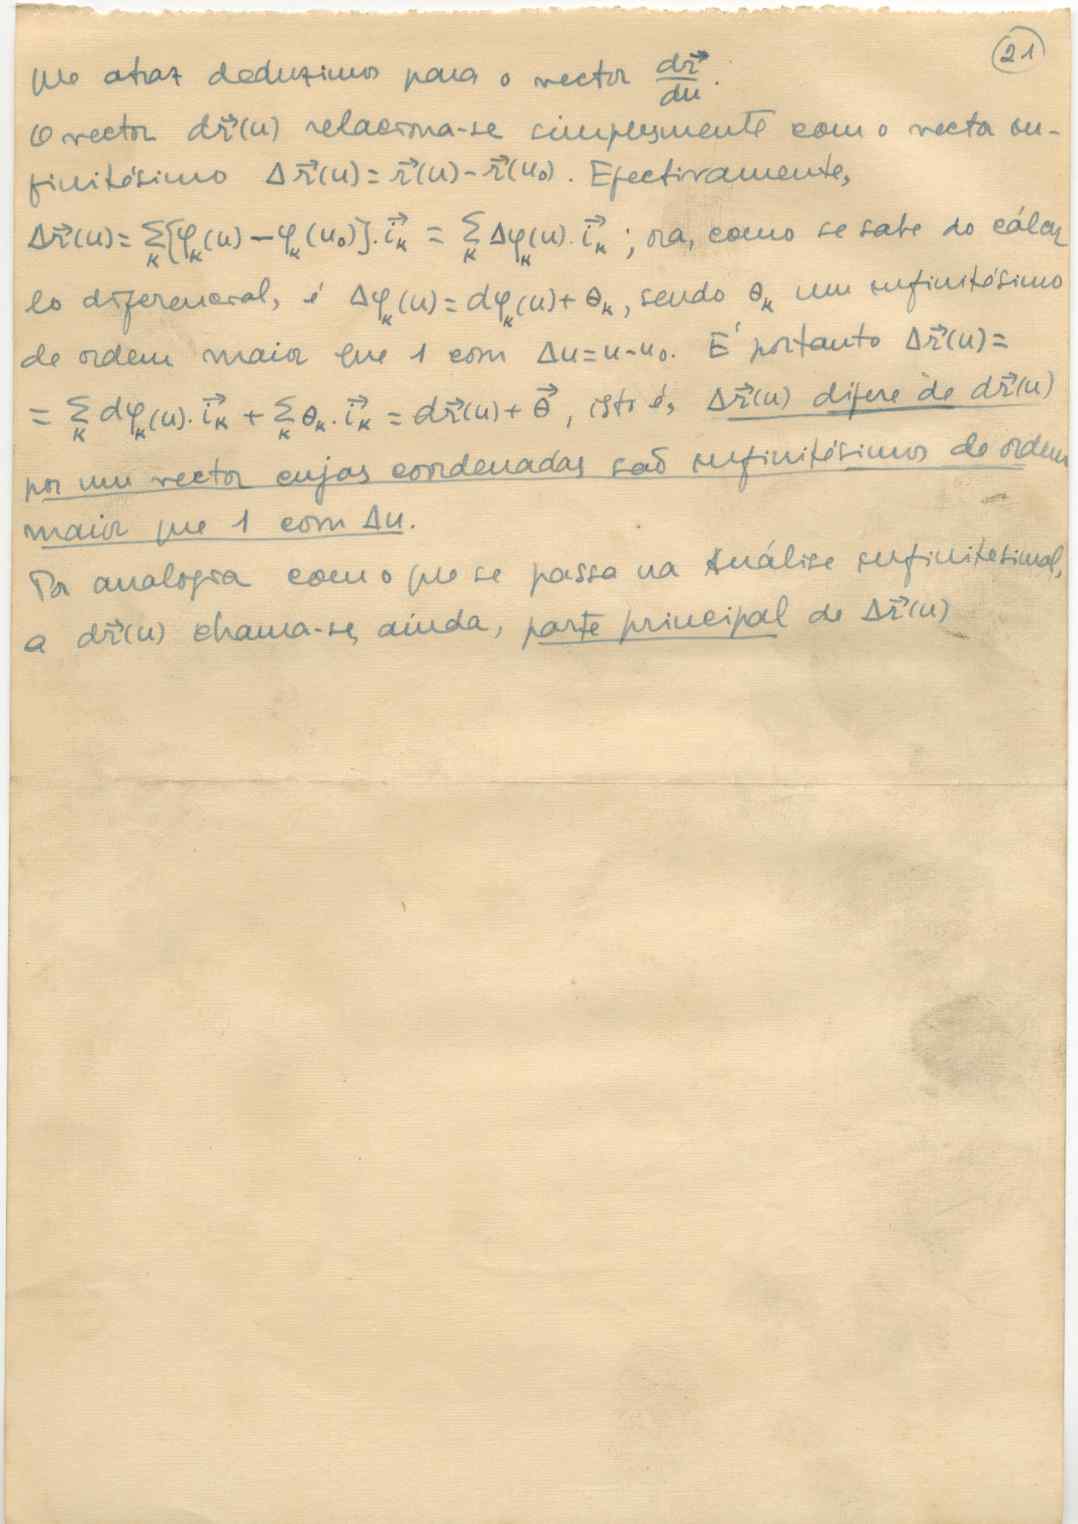 21
que atraz deduzimos para o vector dr⃗/du.
O vector dr⃗(u) relaciona-se simplesmente com o vector in-
finitésimo Δr⃗(u) = r⃗(u) - r⃗(u₀). Efectivamente,
Δr⃗(u) = Σₖ[φₖ(u) - φₖ(u₀)].i⃗ₖ = Σₖ Δφₖ(u).i⃗ₖ ; ora, como se sabe do cálcu
lo diferencial, é Δφₖ(u) = dφₖ(u) + θₖ, sendo θₖ um infinitésimo
de ordem maior que 1 com Δu = u - u₀. É portanto Δr⃗(u) =
= Σₖ dφₖ(u).i⃗ₖ + Σₖ θₖ.i⃗ₖ = dr⃗(u) + θ⃗, isto é, Δr⃗(u) difere de dr⃗(u)
por um vector cujas coordenadas são infinitésimos de ordem
maior que 1 com Δu.
Por analogia com o que se passa na Análise infinitesimal,
a dr⃗(u) chama-se, ainda, parte principal de Δr⃗(u)